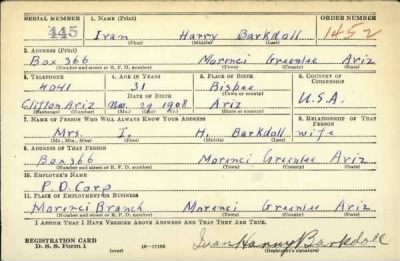 SERIAL NUMBER 1. NAME (Print) ORDER NUMBER
445 Ivan Harry Barkdoll 1452
(First) (Middle) (Last)
2. ADDRESS (Print)
Box 366 Morenci Greenlee Ariz
(Number and street or R. F. D. number) (Town) (County) (State)
3. TELEPHONE 4. AGE IN YEARS 5. PLACE OF BIRTH 6. COUNTRY OF CITIZENSHIP
4041 31 Bisbee
DATE OF BIRTH (Town or county)
Clifton Ariz Nov. 29 1908 Ariz U.S.A.
(Exchange) (Number) (Mo.) (Day) (Yr.) (State or country)
7. NAME OF PERSON WHO WILL ALWAYS KNOW YOUR ADDRESS 8. RELATIONSHIP OF THAT PERSON
Mrs. I. H. Barkdoll wife
(Mr., Mrs., Miss) (First) (Middle) (Last)
9. ADDRESS OF THAT PERSON
Box 366 Morenci Greenlee Ariz
(Number and street or R. F. D. number) (Town) (County) (State)
10. EMPLOYER'S NAME
P.D. Corp
11. PLACE OF EMPLOYMENT OR BUSINESS
Morenci Branch Morenci Greenlee Ariz
(Number and street or R. F. D. number) (Town) (County) (State)
I AFFIRM THAT I HAVE VERIFIED ABOVE ANSWERS AND THAT THEY ARE TRUE.
REGISTRATION CARD
D. S. S. Form 1 (over) Ivan Harry Barkdoll
(Registrant's signature)